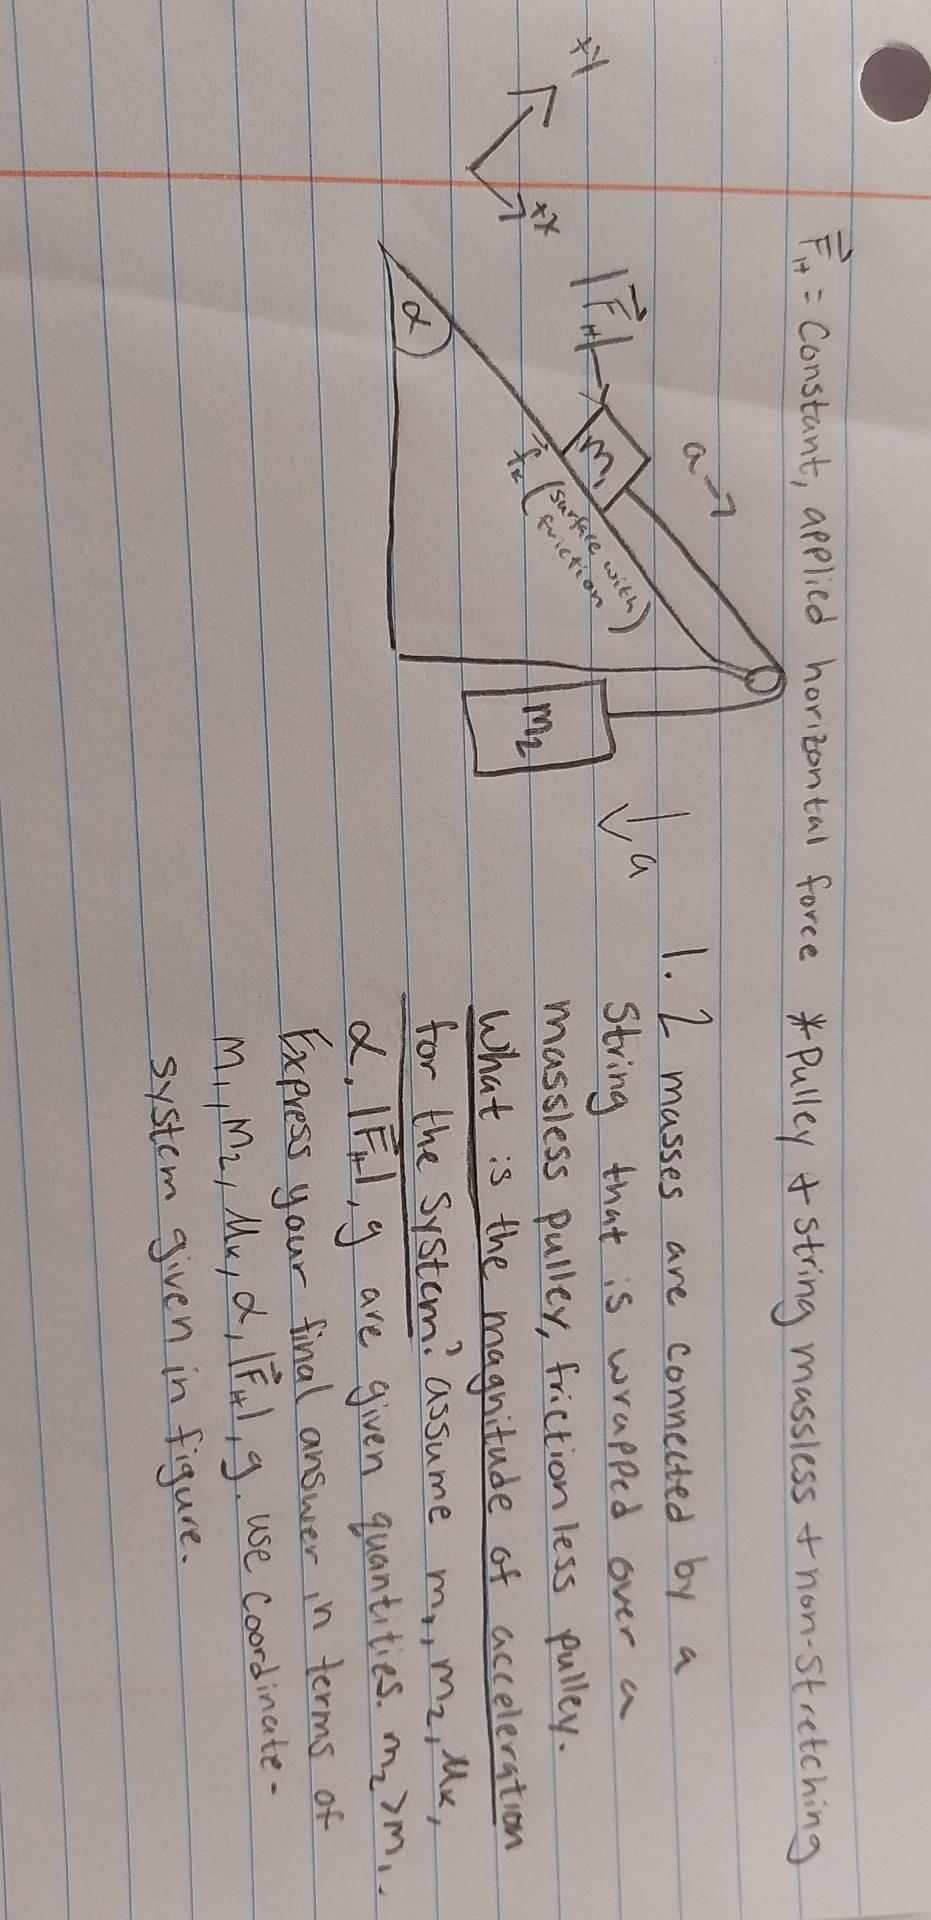 F⃗_H = constant, applied horizontal force *Pulley + string massless + non-stretching
+y
+x
|F⃗_H|→
a→
m₁
α
f⃗_k (surface with friction)
m₂
↓a
1. 2 masses are connected by a
string that is wrapped over a
massless pulley, frictionless pulley.
What is the magnitude of acceleration
for the system? assume m₁, m₂, μ_k,
α, |F⃗_H|, g are given quantities. m₂>m₁.
Express your final answer in terms of
m₁, m₂, μ_k, α, |F⃗_H|, g. use coordinate-
system given in figure.